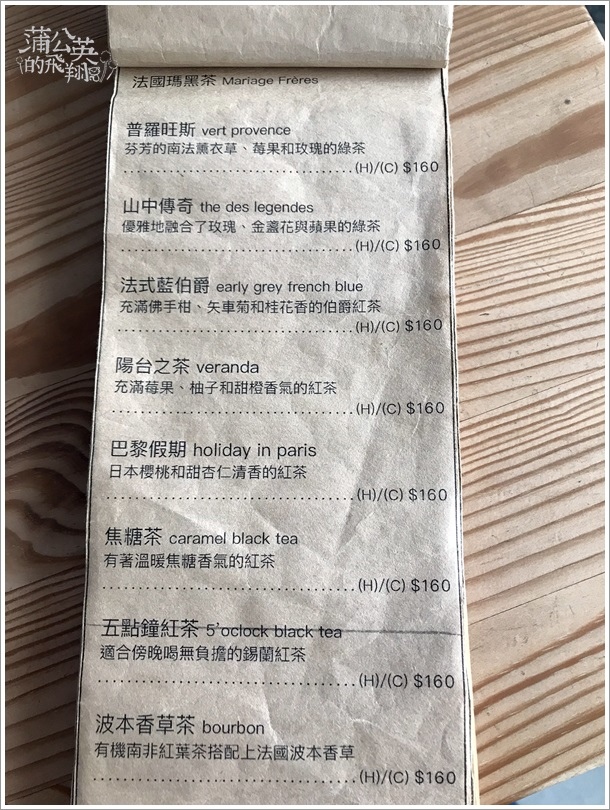 蒲公英
的飛翔窩
法國瑪黑茶 Mariage Frères
普羅旺斯 vert provence
芬芳的南法薰衣草、莓果和玫瑰的綠茶
(H)/(C) $160
山中傳奇 the des legendes
優雅地融合了玫瑰、金盞花與蘋果的綠茶
(H)/(C) $160
法式藍伯爵 early grey french blue
充滿佛手柑、矢車菊和桂花香的伯爵紅茶
(H)/(C) $160
陽台之茶 veranda
充滿莓果、柚子和甜橙香氣的紅茶
(H)/(C) $160
巴黎假期 holiday in paris
日本櫻桃和甜杏仁清香的紅茶
(H)/(C) $160
焦糖茶 caramel black tea
有著溫暖焦糖香氣的紅茶
(H)/(C) $160
五點鐘紅茶 5'oclock black tea
適合傍晚喝無負擔的錫蘭紅茶
(H)/(C) $160
波本香草茶 bourbon
有機南非紅葉茶搭配上法國波本香草
(H)/(C) $160